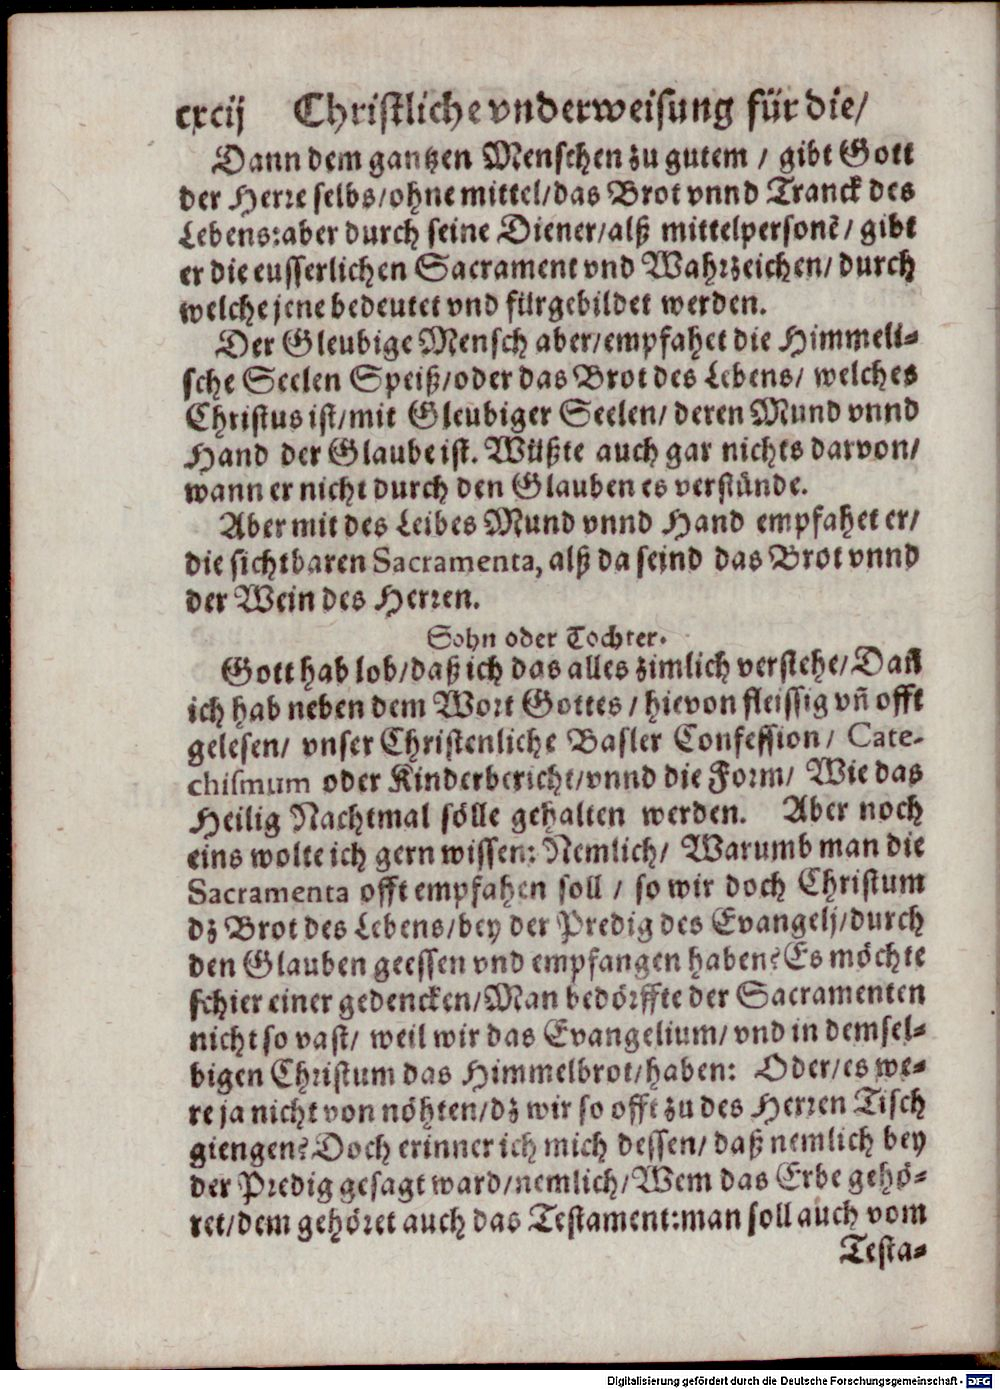 cxcij Christliche vnderweisung für die/
Dann dem gantzen Menschen zu gutem / gibt Gott
der Herre selbs/ohne mittel/das Brot vnnd Tranck des
Lebens:aber durch seine Diener/alß mittelpersonẽ/ gibt
er die eusserlichen Sacrament vnd Wahrzeichen/ durch
welche jene bedeutet vnd fürgebildet werden.
Der Gleubige Mensch aber/empfahet die Himmeli-
sche Seelen Speiß/oder das Brot des Lebens/ welches
Christus ist/mit Gleubiger Seelen/ deren Mund vnnd
Hand der Glaube ist. Wüßte auch gar nichts darvon/
wann er nicht durch den Glauben es verstünde.
Aber mit des Leibes Mund vnnd Hand empfahet er/
die sichtbaren Sacramenta, alß da seind das Brot vnnd
der Wein des Herren.
Sohn oder Tochter.
Gott hab lob/daß ich das alles zimlich verstehe/Dañ
ich hab neben dem Wort Gottes / hievon fleissig vñ offt
gelesen/ vnser Christenliche Basler Confession/ Cate-
chismum oder Kinderbericht/vnnd die Form/ Wie das
Heilig Nachtmal sölle gehalten werden. Aber noch
eins wolte ich gern wissen: Nemlich/ Warumb man die
Sacramenta offt empfahen soll / so wir doch Christum
dz Brot des Lebens/bey der Predig des Evangelj/durch
den Glauben geessen vnd empfangen haben? Es möchte
schier einer gedencken/Man bedörffte der Sacramenten
nicht so vast/ weil wir das Evangelium/ vnd in demsel-
bigen Christum das Himmelbrot/haben: Oder/es we-
re ja nicht von nöhten/dz wir so offt zu des Herren Tisch
giengen? Doch erinner ich mich dessen/ daß nemlich bey
der Predig gesagt ward/nemlich/Wem das Erbe gehö-
ret/dem gehöret auch das Testament:man soll auch vom
Testa-
Digitalisierung gefördert durch die Deutsche Forschungsgemeinschaft - DFG